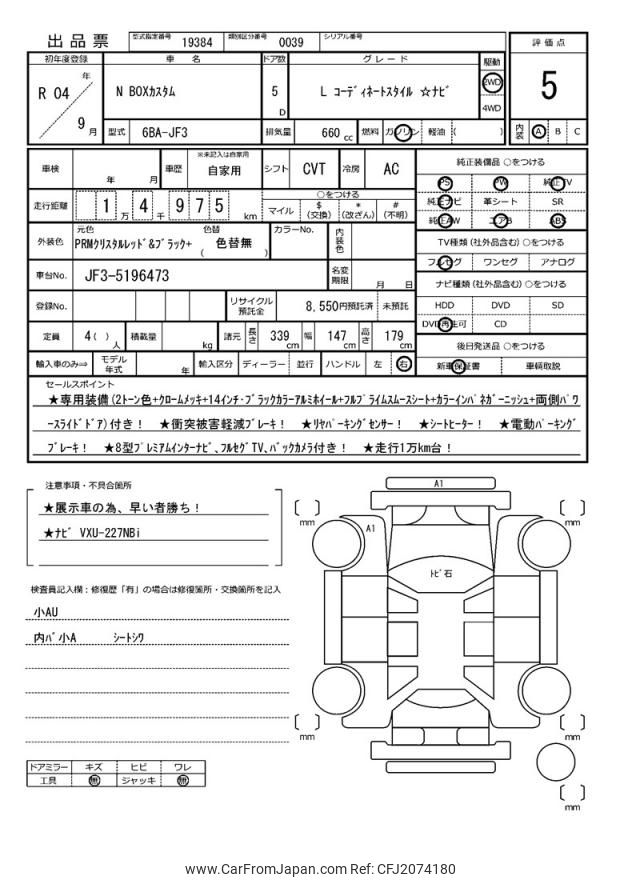 出品票
型式指定番号 19384 類別区分番号 0039 シリアル番号
評価点
5
初年度登録 車名 ドア数 グレード 駆動
R 04 年 9 月
N BOXカスタム
5 D
L コーディネートスタイル ☆ナビ
2WD
4WD
型式 6BA-JF3 排気量 660 cc 燃料 ガソリン 軽油 ( )
内装 A B C
車検 年 月 車歴 ※未記入は自家用 自家用 シフト CVT 冷房 AC
純正装備品 ○をつける
PS PW 純正TV
純正ナビ 革シート SR
純正AW エアB ABS
走行距離 1 万 4 千 9 7 5 km
○をつける
マイル $ (交換) * (改ざん) # (不明)
外装色 元色 色替
PRMクリスタルレッド&ブラック+ ( 色替無 )
カラーNo. 内装色
TV種類 (社外品含む) ○をつける
フルセグ ワンセグ アナログ
車台No. JF3-5196473 名変期限 月 日
ナビ種類 (社外品含む) ○をつける
HDD DVD SD
DVD再生可 CD
登録No. リサイクル預託金 8,550円預託済 未預託
定員 4( ) 人 積載量 kg 諸元 長さ 339 cm 幅 147 cm 高さ 179 cm
後日発送品 ○をつける
新車保証書 車輌取説
輸入車のみ⇒ モデル年式 年 輸入区分 ディーラー 並行 ハンドル 左 右
セールスポイント
★専用装備(2トーン色+クロームメッキ+14インチ・ブラックカラーアルミホイール+フルプライムスムースシート+カラーインパネガーニッシュ+両側パワ
ースライドドア)付き! ★衝突被害軽減ブレーキ! ★リヤパーキングセンサー! ★シートヒーター! ★電動パーキング
ブレーキ! ★8型プレミアムインターナビ、フルセグTV、バックカメラ付き! ★走行1万km台!
注意事項・不具合箇所
★展示車の為、早い者勝ち!
★ナビ VXU-227NBi
検査員記入欄:修復歴「有」の場合は修復箇所・交換箇所を記入
小AU
内バ小A シートシワ
A1
A1
トビ石
mm
mm
mm
mm
mm
ドアミラー キズ ヒビ ワレ
工具 無 ジャッキ 無
www.CarFromJapan.com Ref: CFJ2074180